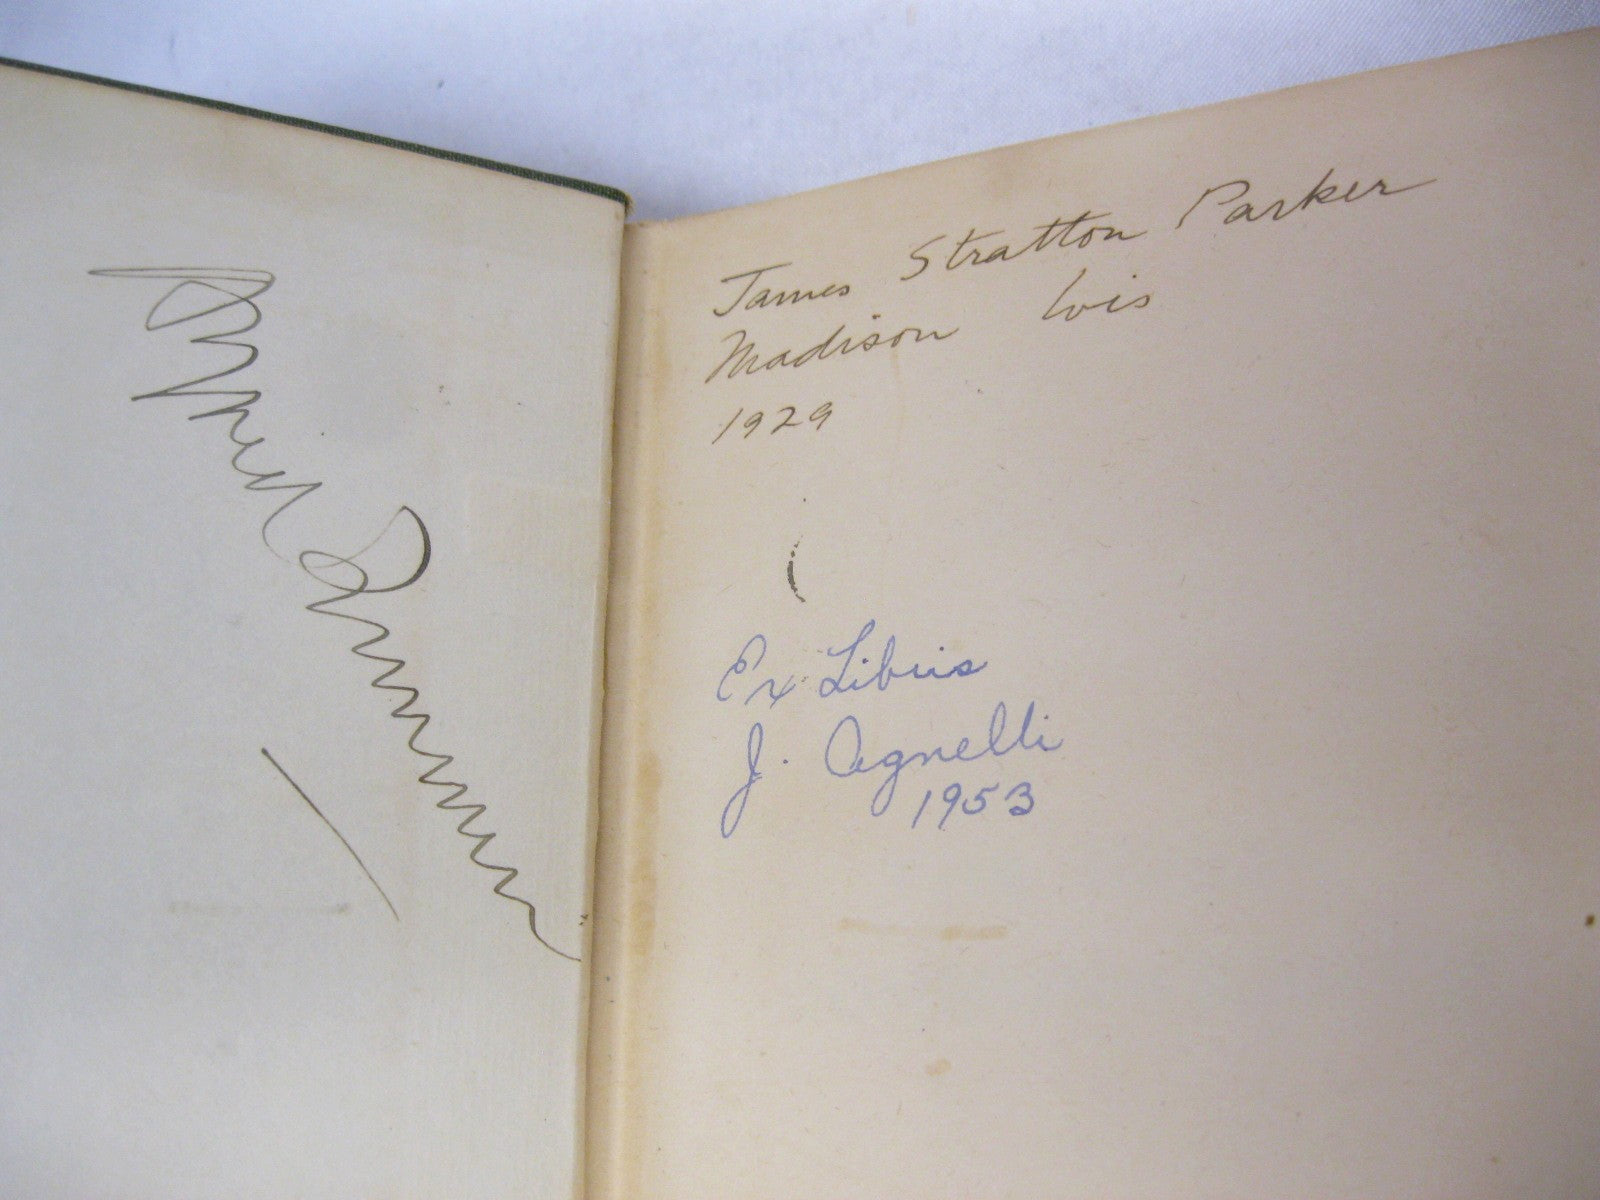 James Stratton Parker
Madison Wis
1929
Ex Libris
J. Agnelli
1953